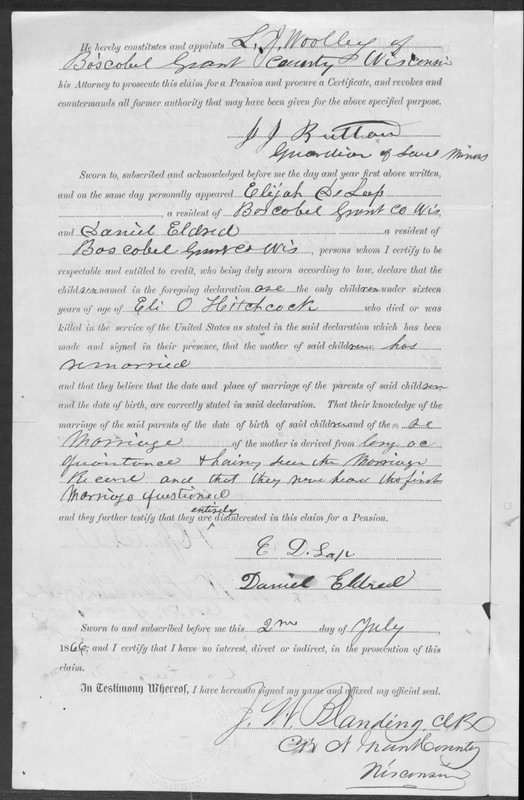 He hereby constitutes and appoints L. J. Woolley of
Boscobel Grant County Wisconsin
his Attorney to prosecute this claim for a Pension and procure a Certificate, and revokes and
countermands all former authority that may have been given for the above specified purpose.
J J Button
Guardian of Said Minors
Sworn to, subscribed and acknowledged before me the day and year first above written,
and on the same day personally appeared Elijah De Lap
, a resident of Boscobel Grant Co Wis
and Daniel Eldred a resident of
Boscobel Grant Co Wis, persons whom I certify to be
respectable and entitled to credit, who being duly sworn according to law, declare that the
children named in the foregoing declaration are the only children under sixteen
years of age of Eli O Hitchcock who died or was
killed in the service of the United States as stated in the said declaration which has been
made and signed in their presence, that the mother of said children has
remarried
and that they believe that the date and place of marriage of the parents of said children
and the date of birth, are correctly stated in said declaration. That their knowledge of the
marriage of the said parents of the date of birth of said children and of the re
Marriage of the mother is derived from long ac
quaintance & having seen the Marriage
Record and that they never heard the first
Marriage questioned
and they further testify that they are entirely disinterested in this claim for a Pension.
E D. Lap
Daniel Eldred
Sworn to and subscribed before me this 2nd day of July,
1866; and I certify that I have no interest, direct or indirect, in the prosecution of this
claim.
In Testimony Whereof, I have hereunto signed my name and affixed my official seal.
J. W. Blanding
Grant County
Wisconsin